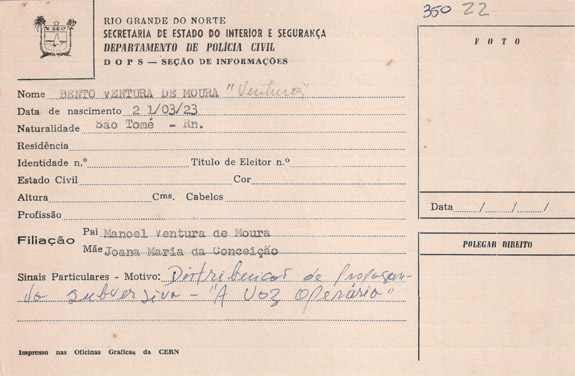 350 22
RIO GRANDE DO NORTE
SECRETARIA DE ESTADO DO INTERIOR E SEGURANÇA
DEPARTAMENTO DE POLÍCIA CIVIL
DOPS — SEÇÃO DE INFORMAÇÕES
FOTO
Nome BENTO VENTURA DE MOURA "Ventura"
Data de nascimento 2 1/03/23
Naturalidade São Tomé - Rn.
Residência
Identidade n.º Titulo de Eleitor n.º
Estado Civil Cor
Altura Cms. Cabelos
Profissão
Data / / /
Filiação
Pai Manoel Ventura de Moura
Mãe Joana Maria da Conceição
POLEGAR DIREITO
Sinais Particulares - Motivo: Distribuicas de Propagan-
da subversiva - "A Voz Operário"
Impresso nas Oficinas Graficas da CERN